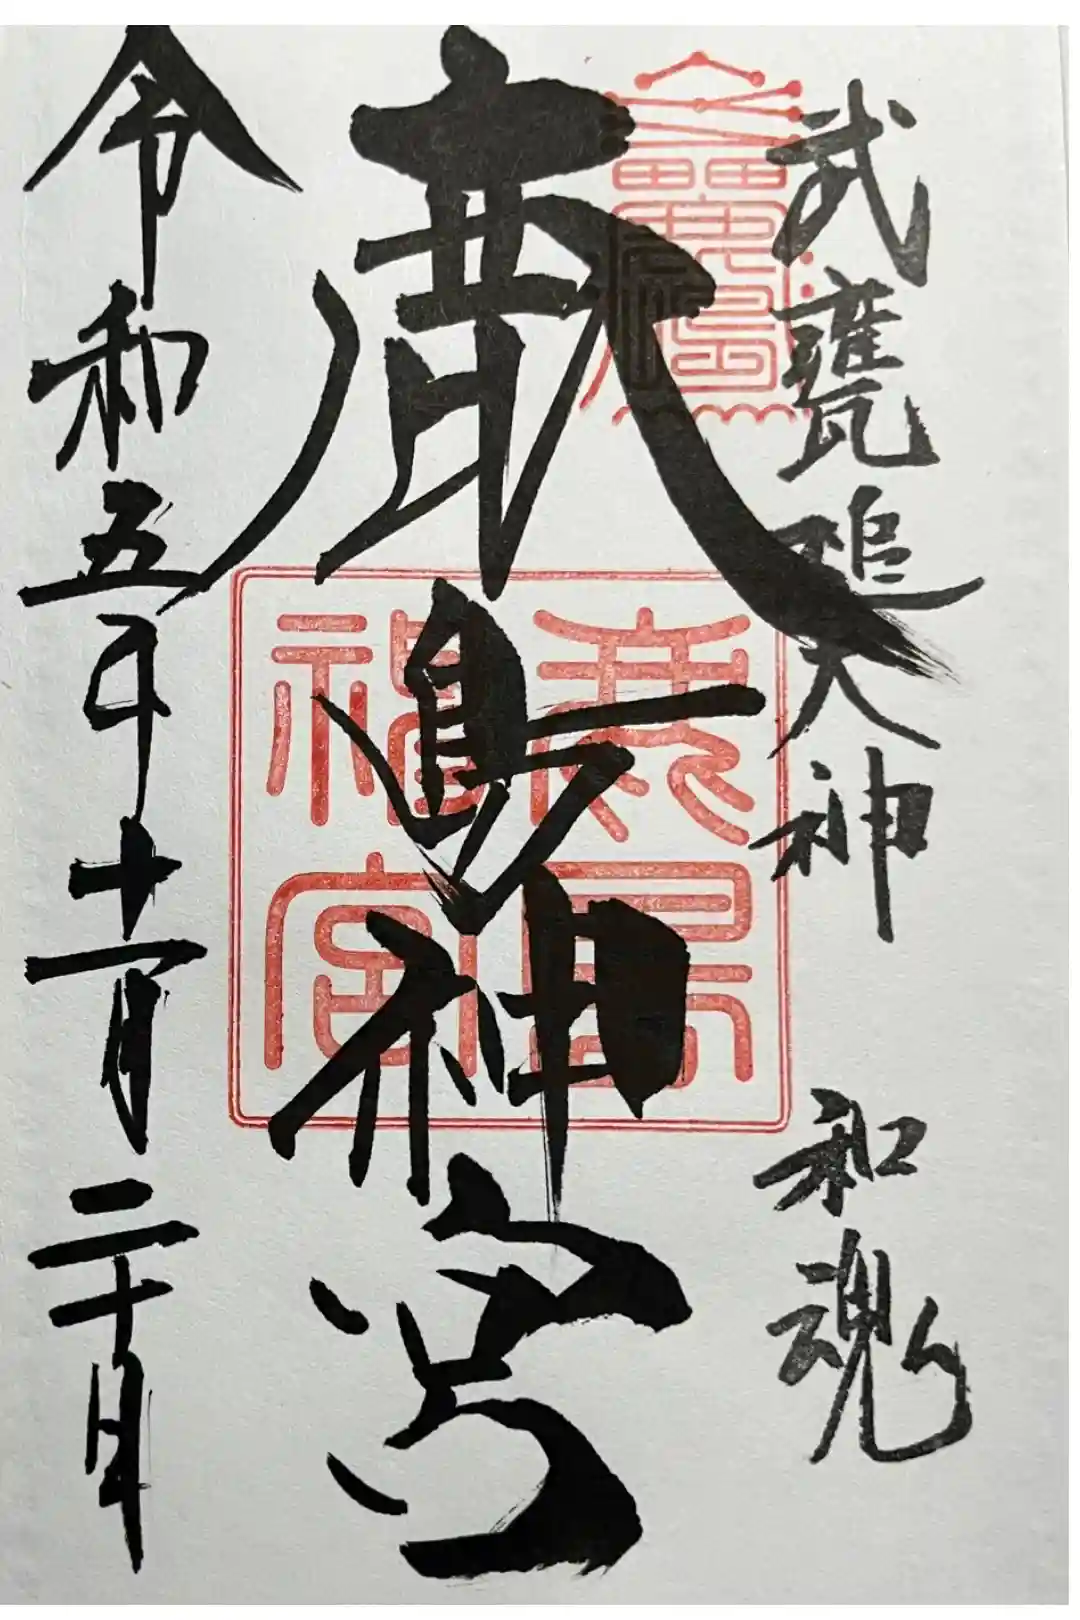 武甕槌大神 和魂
鹿島神宮
鹿島神宮
令和五年十一月二十日